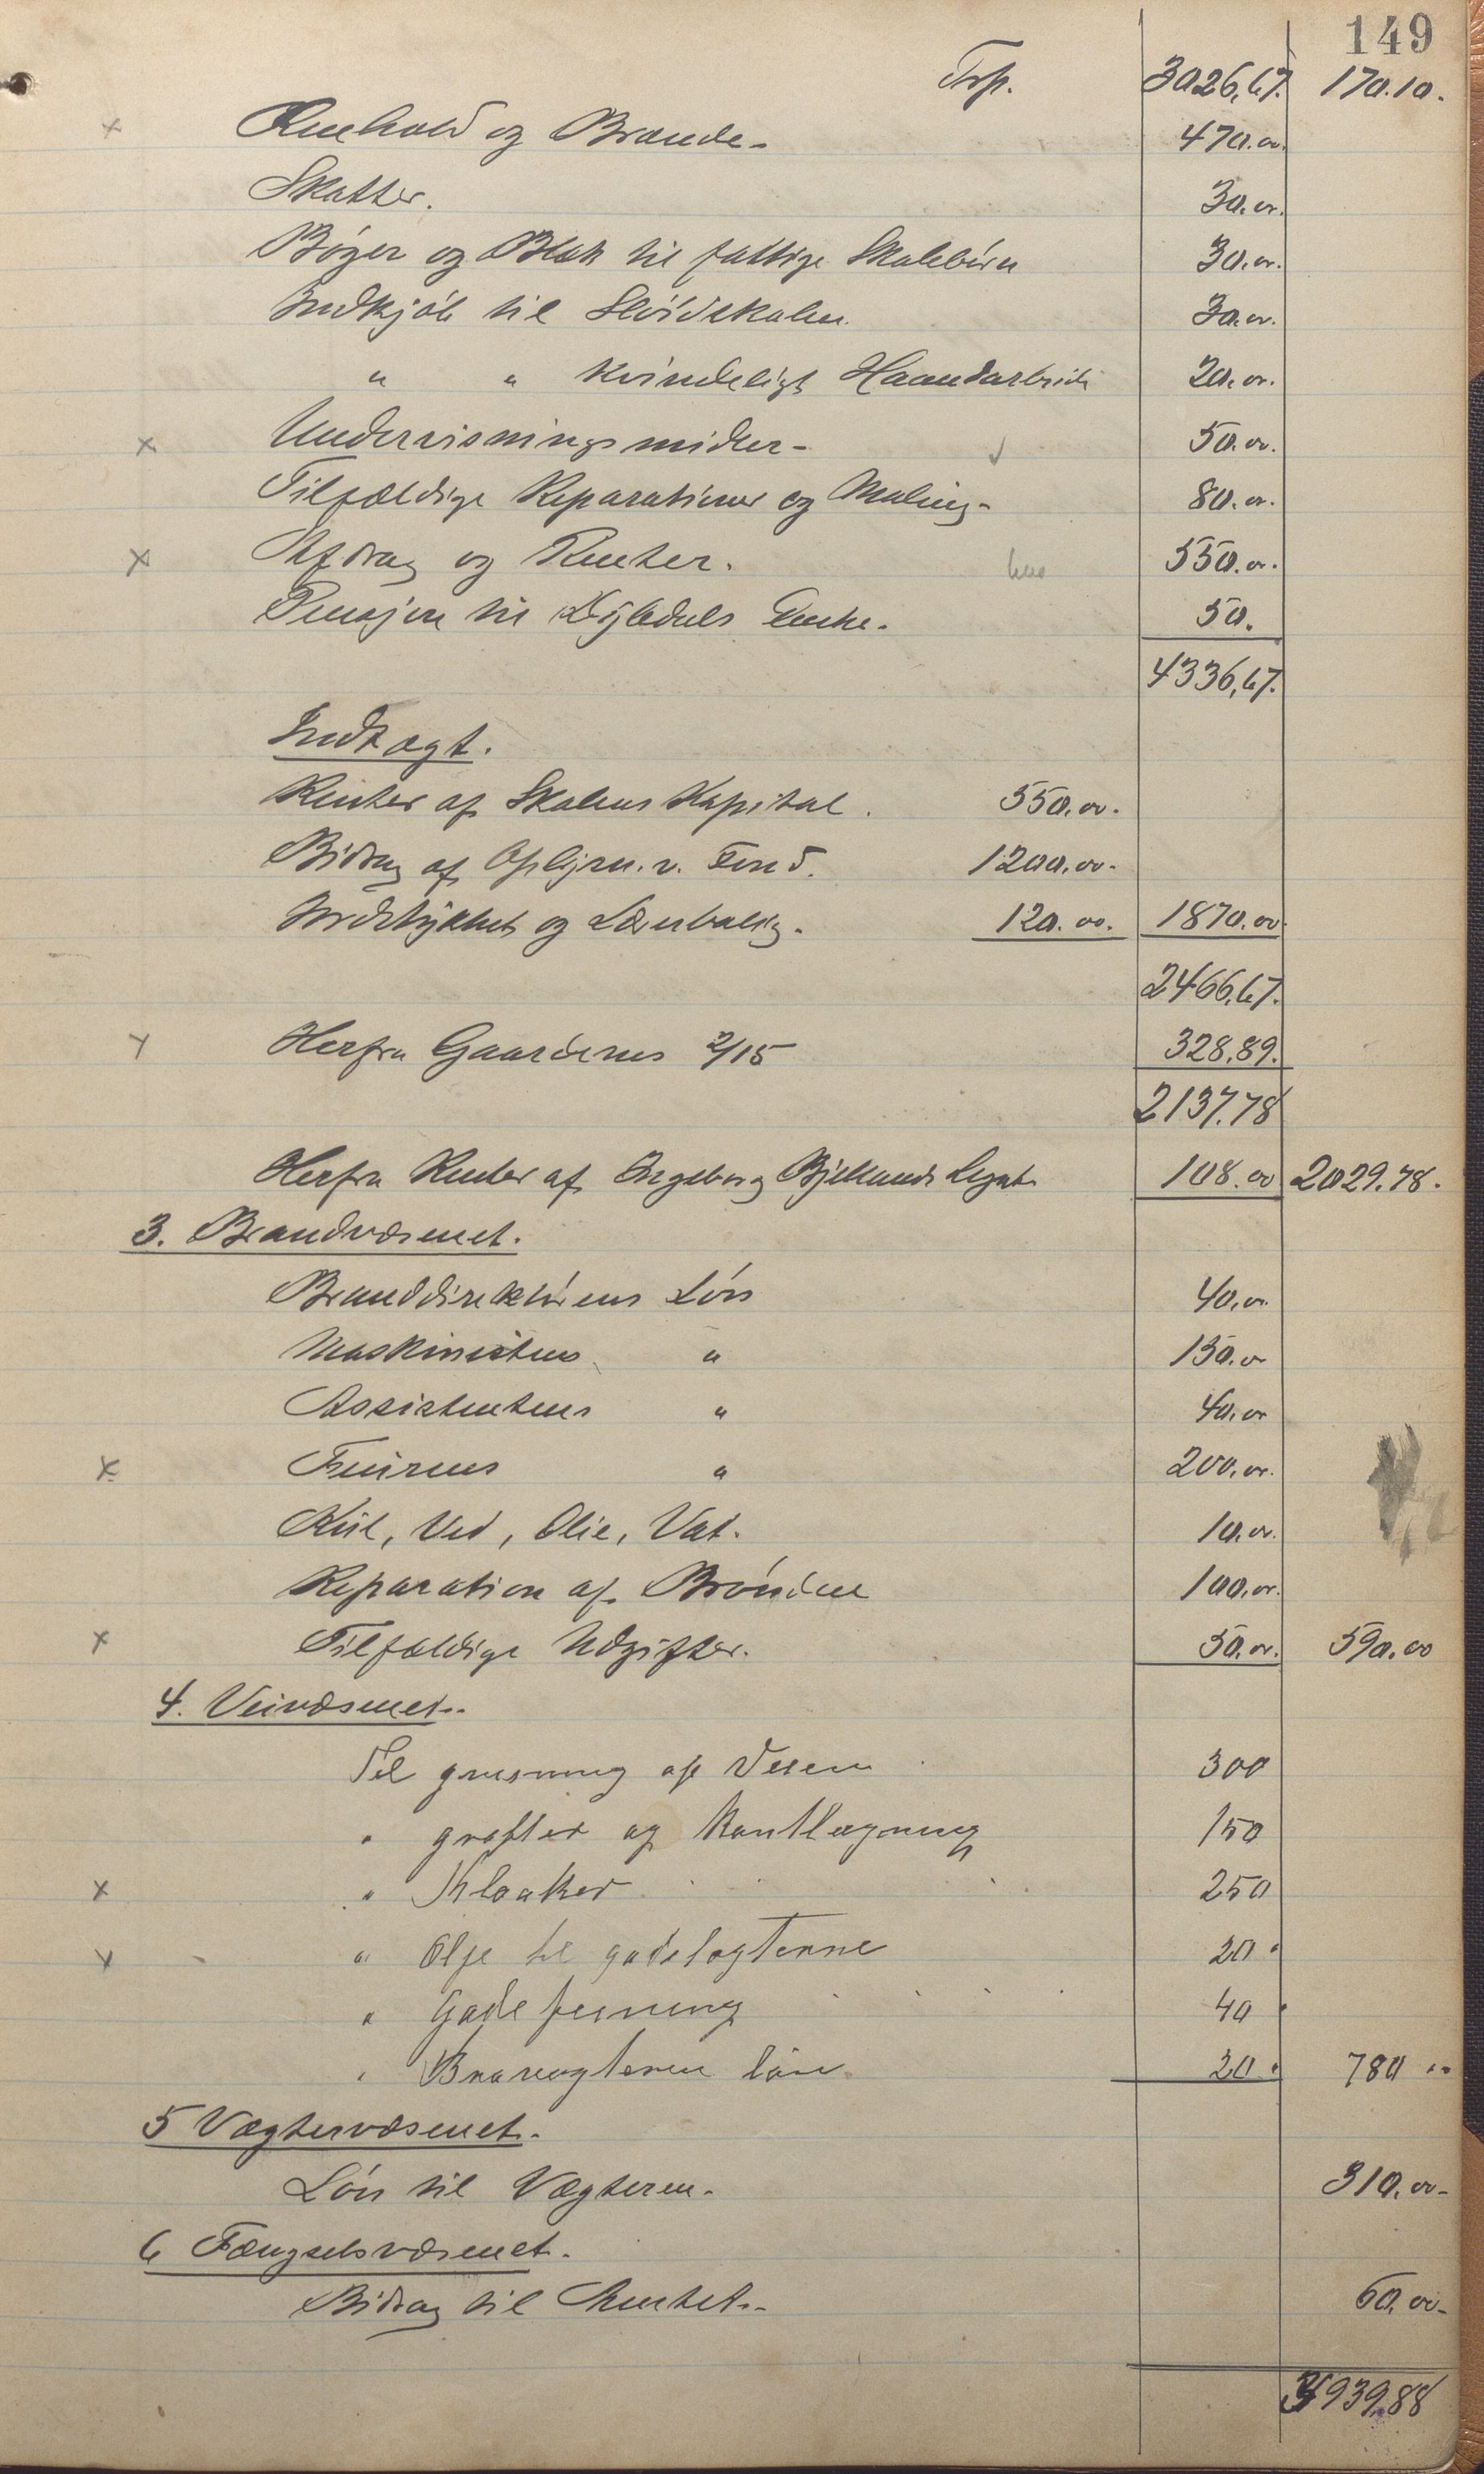 149
Trsp. 3026,67. 170.10.
Renhold og Brænde - 470.00.
Skatter. 30.00.
Bøger og Blæk til fattige Skolebørn 30.00.
Indkjøb til Sløidskolen. 30.00.
" " kvindeligt Haandarbeide 20.00.
Undervisningsmidler - 50.00.
Tilfældige Reparationer og Maling - 80.00.
Afdrag og Renter. 550.00.
Pensjon til Enke. 50.
4336,67.
Indtægt.
Renter af Skolens Kapital. 550.00.
Bidrag af Oplysn. v. Fond. 1200.00.
Indstykket og Lærerbolig. 120.00. 1870.00.
2466,67.
Herfra Gaardenes 2/15 328,89.
2137.78
Herfra Renter af Ingeborg Bjellands Legat 108.00 2029.78.
3. Brandvæsenet.
Branddirektørens Løn 40.00.
Maskinistens " 150.00
Assistentens " 40.00
Feierens " 200.00.
Kul, Ved, Olie, Vat. 10.00.
Reparation af Brøndene 100.00.
Tilfældige Udgifter. 50.00. 590.00
4. Veivæsenet.
Til grusning af Veien 300
" grøfter og Kantlægning 150
" Kloaker 250
" Olje til gadelygterne 20 "
" Gadefeining 40 "
" løn 20 " 780 "
5 Vægtervæsenet.
Løn til Vægteren. 310.00
6 Fængselsvæsenet.
Bidrag til Amtet. 60.00
3939,88